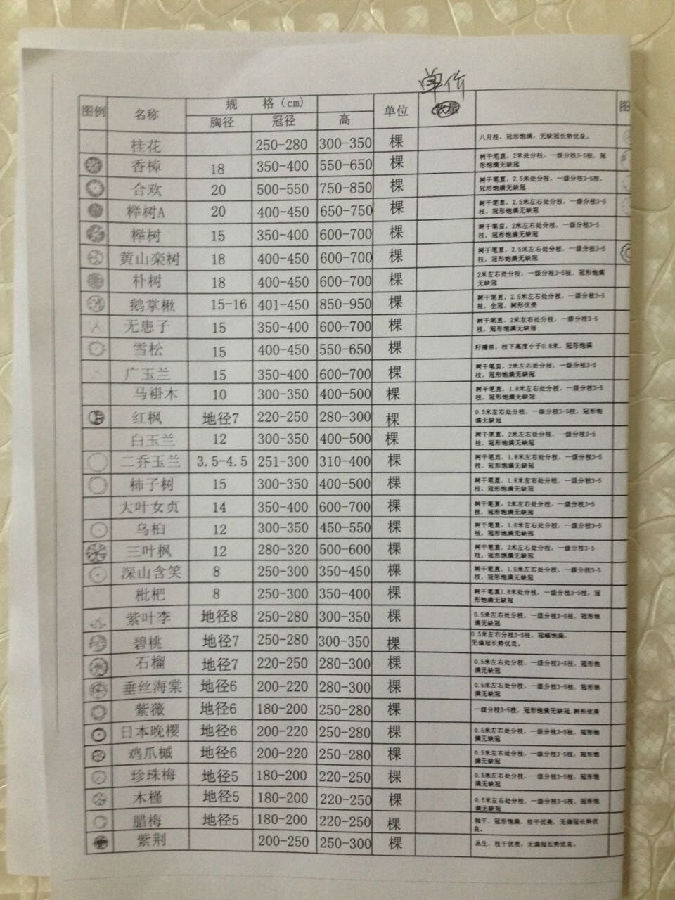 单价
图例 名称 规 格(cm) 单位
胸径 冠径 高
桂花 250-280 300-350 棵 八月桂，冠形饱满，无缺冠长势优良。
香樟 18 350-400 550-650 棵 树干笔直，2米处分枝，一级分枝3-5枝，冠形饱满无缺冠
合欢 20 500-550 750-850 棵 树干笔直，2.5米处分枝，一级分枝3-5枝，冠形饱满无缺冠
榉树A 20 400-450 650-750 棵 树干笔直，2.5米左右处分枝，一级分枝3-5枝，冠形饱满无缺冠
榉树 15 350-400 600-700 棵 树干笔直，2米左右处分枝，一级分枝3-5枝，冠形饱满无缺冠
黄山栾树 18 400-450 600-700 棵 树干笔直，2.5米左右处分枝，一级分枝3-5枝，冠形饱满无缺冠
朴树 18 400-450 600-700 棵 2米左右处分枝，一级分枝3-5枝，冠形饱满无缺冠
鹅掌楸 15-16 401-450 850-950 棵 树干笔直，2.5米左右处分枝，一级分枝3-5枝，全冠，树形优美
无患子 15 350-400 600-700 棵 树干笔直，2米左右处分枝，一级分枝3-5枝，冠形饱满无缺冠
雪松 15 400-450 550-650 棵 枝下高度小于0.8米，冠形饱满
广玉兰 15 350-400 600-700 棵 树干笔直，2米左右处分枝，一级分枝3-5枝，冠形饱满无缺冠
马褂木 10 300-350 400-500 棵 树干笔直，1.8米左右处分枝，一级分枝3-5枝，冠形饱满无缺冠
红枫 地径7 220-250 280-300 棵 0.5米左右处分枝，一级分枝3-5枝，冠形饱满无缺冠
白玉兰 12 300-350 400-500 棵 树干笔直，2米左右处分枝，一级分枝3-5枝，冠形饱满无缺冠
二乔玉兰 3.5-4.5 251-300 310-400 棵 树干笔直，1.8米左右处分枝，一级分枝3-5枝，冠形饱满无缺冠
柿子树 15 300-350 400-500 棵 树干笔直，1.8米左右处分枝，一级分枝3-5枝，冠形饱满无缺冠
大叶女贞 14 350-400 600-700 棵 树干笔直，2米左右处分枝，一级分枝3-5枝，冠形饱满无缺冠
乌桕 12 300-350 450-550 棵 树干笔直，1.8米左右处分枝，一级分枝3-5枝，冠形饱满无缺冠
三叶枫 12 280-320 500-600 棵 树干笔直，2米左右处分枝，一级分枝3-5枝，冠形饱满无缺冠
深山含笑 8 250-300 350-450 棵 树干笔直，1.5米左右处分枝，一级分枝3-5枝，冠形饱满无缺冠
枇杷 8 250-300 350-400 棵 树干笔直1.8米左右处分枝，一级分枝3-5枝，冠形饱满无缺冠
紫叶李 地径8 250-280 300-350 棵 0.5米左右处分枝，一级分枝3-5枝，冠形饱满无缺冠
碧桃 地径7 250-280 300-350 棵 0.5米左右分枝3-5枝，冠幅饱满，无偏冠长势优良。
石榴 地径7 220-250 280-300 棵 0.5米左右处分枝，一级分枝3-5枝，冠形饱满无缺冠
垂丝海棠 地径6 200-220 280-300 棵 0.5米左右处分枝，一级分枝3-5枝，冠形饱满无缺冠
紫薇 地径6 180-200 250-280 棵 一级分枝3-5枝，冠形饱满无缺冠，树形优美
日本晚樱 地径6 200-220 250-280 棵 0.5米左右处分枝，一级分枝3-5枝，冠形饱满无缺冠
鸡爪槭 地径6 200-220 250-280 棵 0.5米左右处分枝，一级分枝3-5枝，冠形饱满无缺冠
珍珠梅 地径5 180-200 220-250 棵 0.5米左右处分枝，一级分枝3-5枝，冠形饱满无缺冠
木槿 地径5 180-200 220-250 棵 0.5米左右处分枝，一级分枝3-5枝，冠形饱满无缺冠
腊梅 地径5 180-200 220-250 棵 冠形饱满，枝干优美，无偏冠长势优良。
紫荆 200-250 250-300 棵 丛生，枝干优美，无偏冠长势优良。